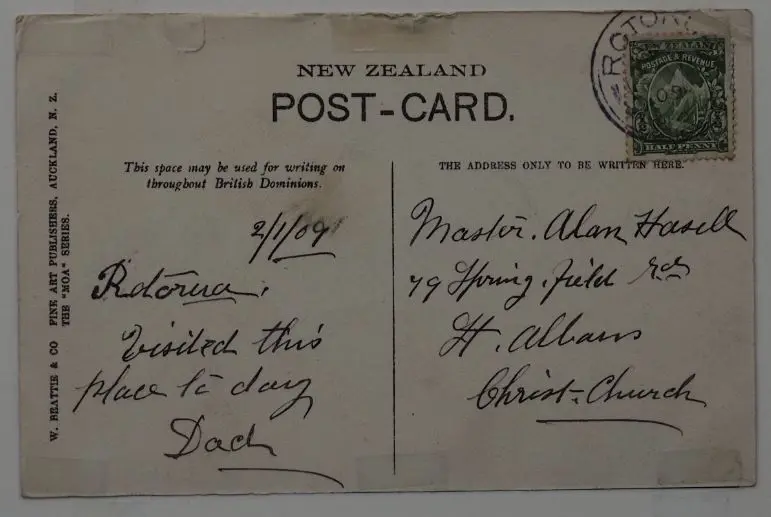 NEW ZEALAND
POST-CARD.
ROTORU
09
NEW ZEALAND
POSTAGE & REVENUE
HALF PENNY
This space may be used for writing on
throughout British Dominions.
THE ADDRESS ONLY TO BE WRITTEN HERE.
W. BEATTIE & CO FINE ART PUBLISHERS, AUCKLAND, N. Z.
THE "MOA" SERIES.
2/1/09
Rotorua.
Visited this
place to day
Dad
Master. Alan Hasell
79 Spring.field Rd
St. Albans
Christ-Church